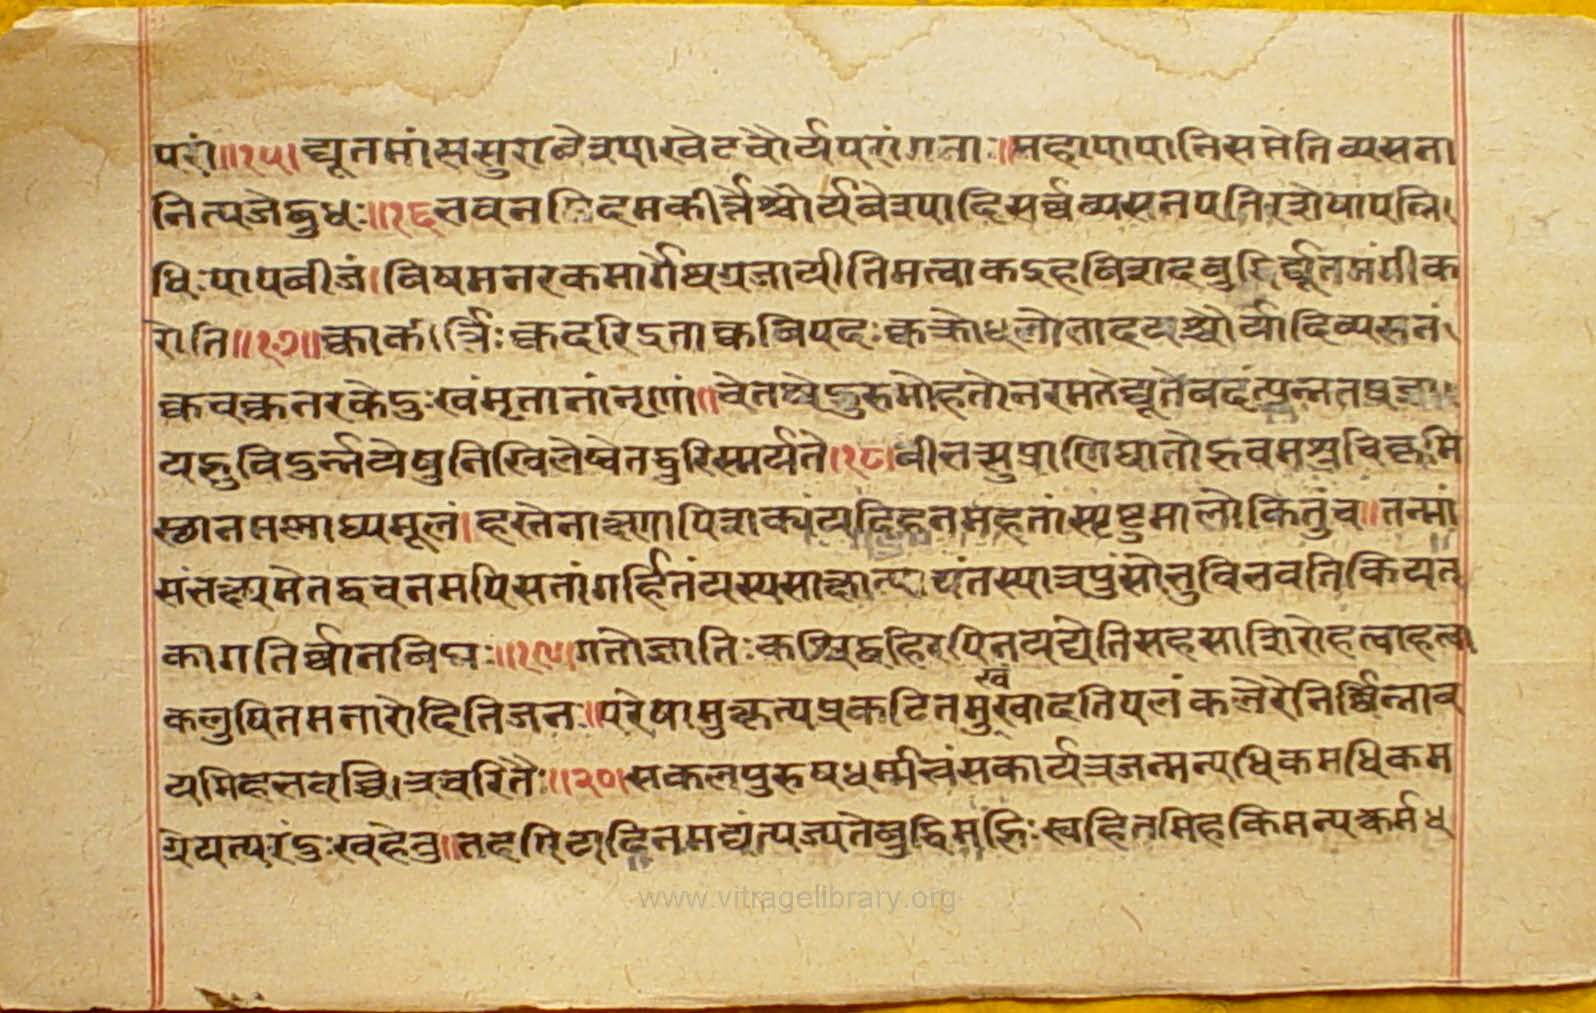 परां॥१५॥द्यूतमांससुरावेश्याखेटचौर्यपरांगनाः॥महापापानिसप्तेतिव्यसना
नित्यजेद्बुधः॥१६॥भवनमिदमकीर्त्तेश्चौर्यवेश्यादिसर्व्वव्यसनपतिरशेषापन्नि
धिःपापबीजं।विषमनरकमार्गेष्वग्रजायीतिमत्वाकइहविशदबुद्धिर्द्यूतमंगीक
रोति॥१७॥क्वाकीर्त्तिःक्वदरिद्रताक्वविपदःक्वक्रोधलोभादयश्चौर्यादिव्यसनं
क्वचक्वनरकेदुःखंमृतानांनृणां॥चेतश्चेद्गुरुमोहतोनरमतेद्यूतेवदंत्युन्नतप्रज्ञा
यद्भुविदुर्न्नयेषुनिखिलेष्वेतद्धुरिस्मर्यते॥१८॥बीभत्सुप्राणिघातोद्भवमशुचिकृमि
स्थानमश्लाघ्यमूलं।हस्तेनाक्ष्णापिशक्यंत्यदिहनमहतांस्पृष्टुमालोकितुंच॥तन्मां
संभक्ष्यमेतद्वचनमपिसतांगर्हितंयस्यसाक्षात्पापंतस्यात्रपुंसोभुविभवतिकियत्
कागतिर्व्वानविद्मः॥१९॥गतोज्ञातिःकश्चिद्बहिरपिनयद्येतिसहसाशिरोहत्वाहत्वा
कलुषितमनारोदितिजनः॥परेषामुत्कृत्यप्रकटितमुखंखादतिपलंकलेरेनिर्व्विन्नाव
यमिहभवच्चित्रचरितैः॥२०॥सकलपुरुषधर्म्मभ्रंसकार्यत्रजन्मन्यधिकमधिकम
ग्रेयत्परंदुःखहेतु॥तदपि
नमद्यंत्यज्यतेबुद्धिमद्भिःस्वहितमिहकिमन्यत्कर्मध